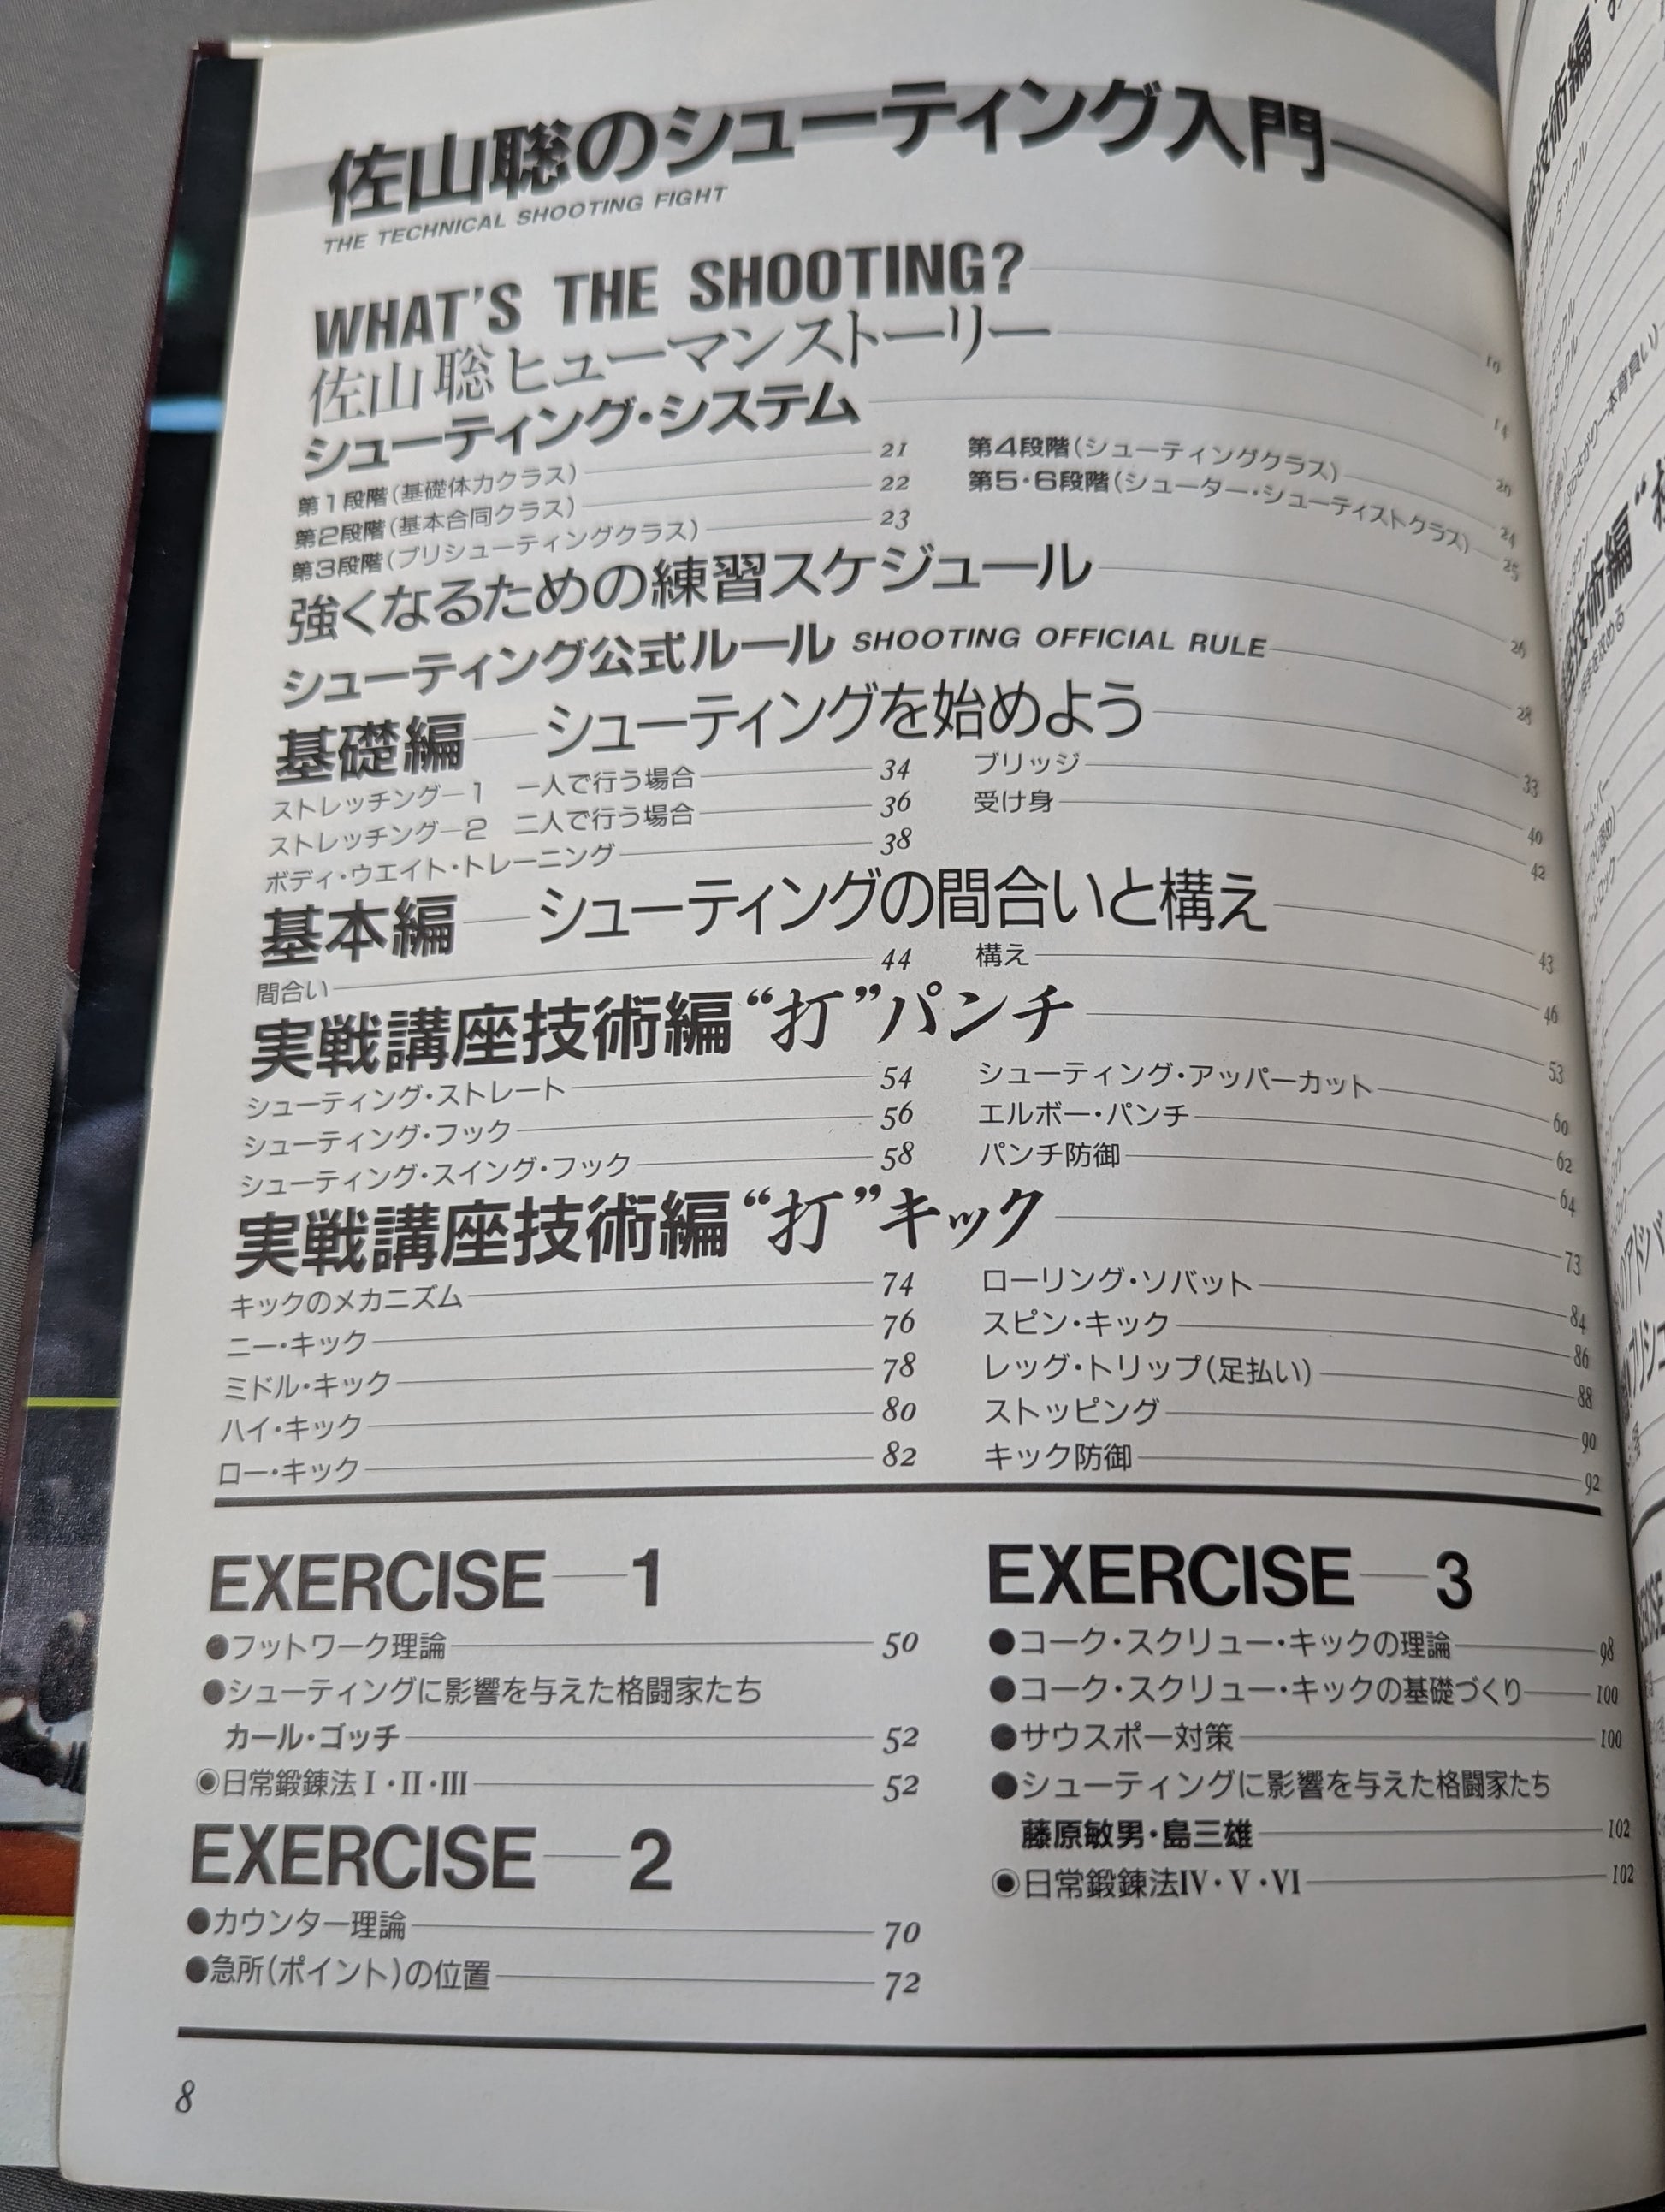 佐山聡のシューティング入門
THE TECHNICAL SHOOTING FIGHT
WHAT'S THE SHOOTING? 10
佐山聡ヒューマンストーリー 14
シューティング・システム 20
第1段階(基礎体力クラス) 21
第2段階(基本合同クラス) 22
第3段階(プリシューティングクラス) 23
第4段階(シューティングクラス) 24
第5・6段階(シューター・シューティストクラス) 25
強くなるための練習スケジュール 26
シューティング公式ルール SHOOTING OFFICIAL RULE 28
基礎編—シューティングを始めよう 33
ストレッチング—1 一人で行う場合 34
ストレッチング—2 二人で行う場合 36
ボディ・ウエイト・トレーニング 38
ブリッジ 40
受け身 42
基本編—シューティングの間合いと構え 43
間合い 44
構え 46
実戦講座技術編“打”パンチ 53
シューティング・ストレート 54
シューティング・フック 56
シューティング・スイング・フック 58
シューティング・アッパーカット 60
エルボー・パンチ 62
パンチ防御 64
実戦講座技術編“打”キック 73
キックのメカニズム 74
ニー・キック 76
ミドル・キック 78
ハイ・キック 80
ロー・キック 82
ローリング・ソバット 84
スピン・キック 86
レッグ・トリップ(足払い) 88
ストッピング 90
キック防御 92
EXERCISE—1
●フットワーク理論 50
●シューティングに影響を与えた格闘家たち
カール・ゴッチ 52
◉日常鍛錬法Ⅰ・Ⅱ・Ⅲ 52
EXERCISE—2
●カウンター理論 70
●急所(ポイント)の位置 72
EXERCISE—3
●コーク・スクリュー・キックの理論 98
●コーク・スクリュー・キックの基礎づくり 100
●サウスポー対策 100
●シューティングに影響を与えた格闘家たち
藤原敏男・島三雄 102
◉日常鍛錬法Ⅳ・Ⅴ・Ⅵ 102
8